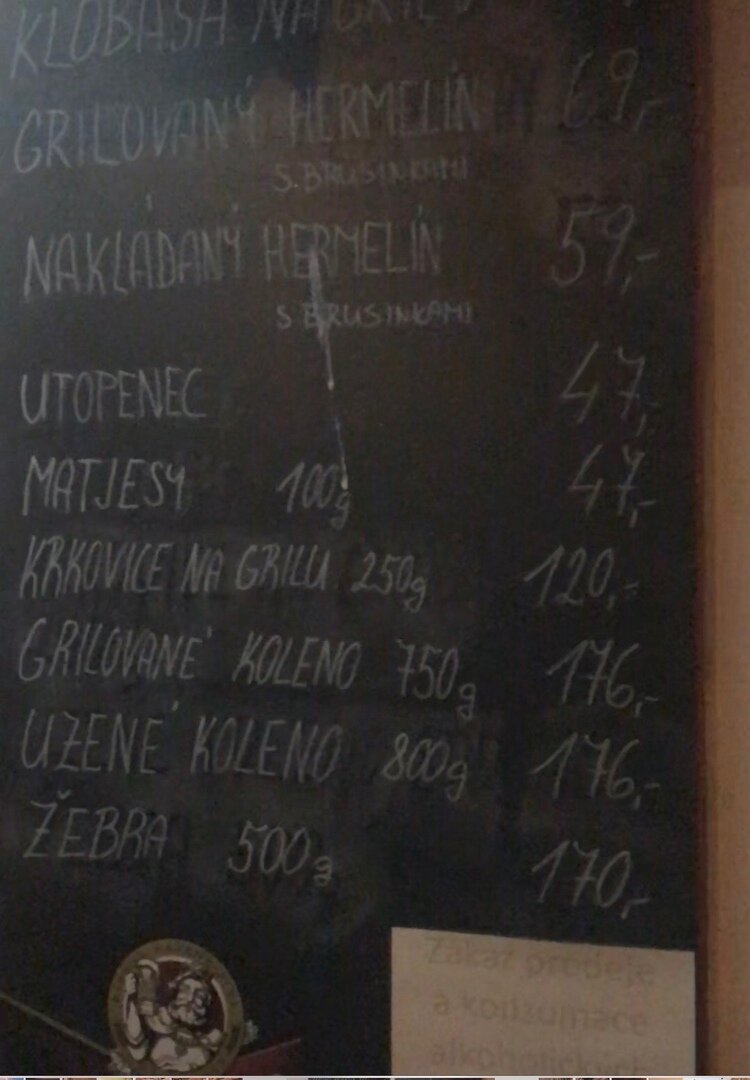 KLOBÁSA NA GRILU
GRILOVANÝ HERMELÍN 69,-
S. BRUSINKAMI
NAKLÁDANÝ HERMELÍN 59,-
S BRUSINKAMI
UTOPENEC 47,-
MATJESY 100g 47,-
KRKOVICE NA GRILU 250g 120,-
GRILOVANÉ KOLENO 750g 176,-
UZENÉ KOLENO 800g 176,-
ŽEBRA 500g 170,-
Zákaz prodeje
a konzumace